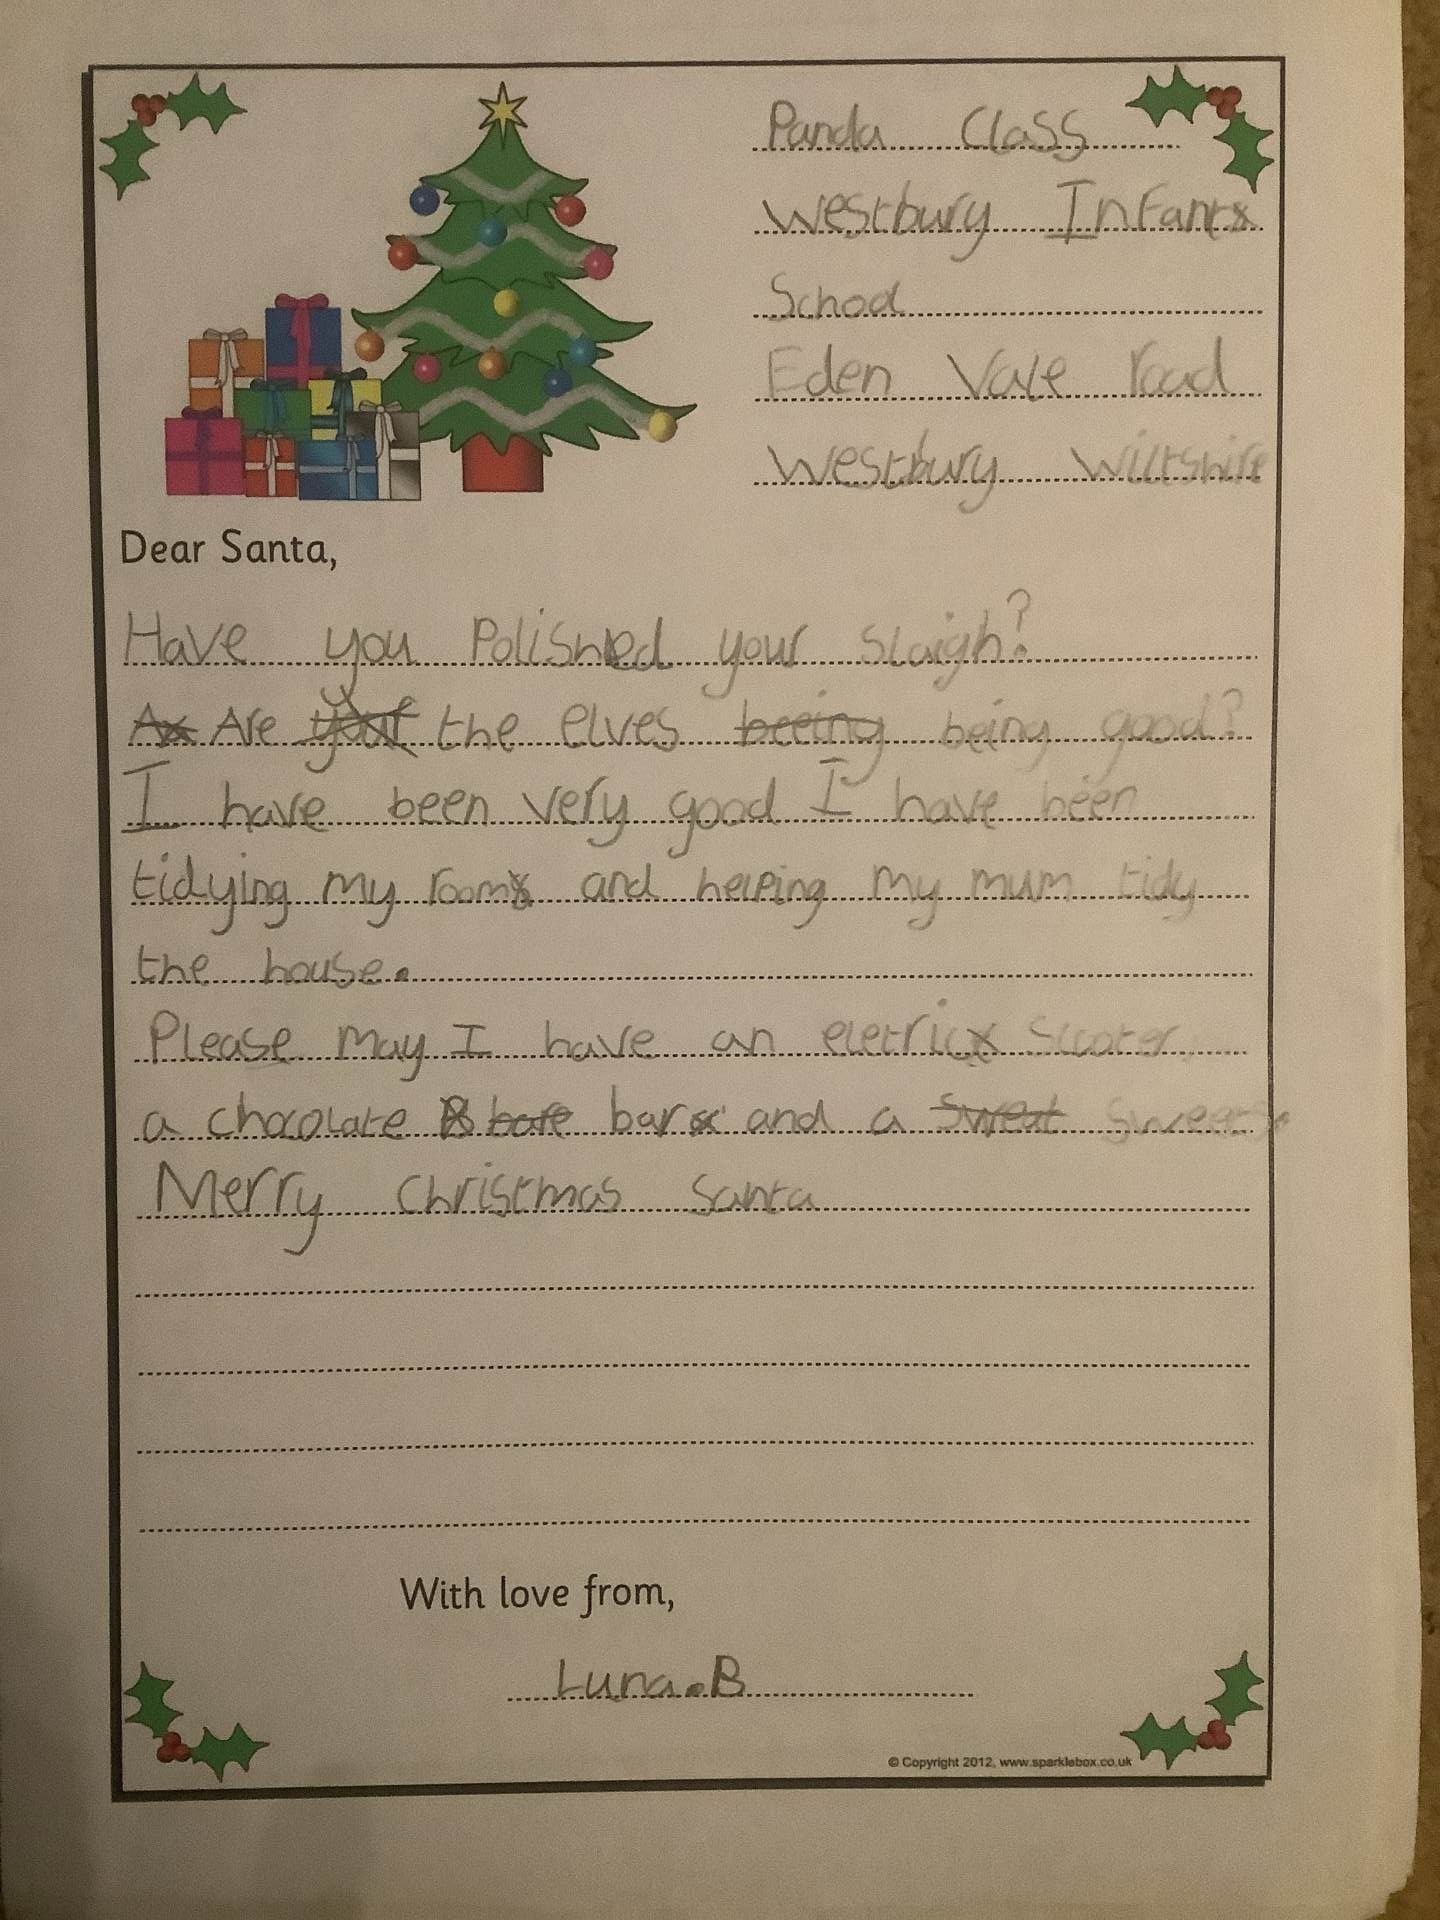 Panda Class
Westbury Infants
School
Eden Vale road
Westbury Wiltshire
Dear Santa,
Have you Polished your slaigh?
Are the elves being good?
I have been very good I have been
tidying my room and helping my mum tidy
the house.
Please may I have an eletric scooter,
a chocolate bar and a sweets.
Merry christmas santa
With love from,
Luna.B
© Copyright 2012, www.sparklebox.co.uk